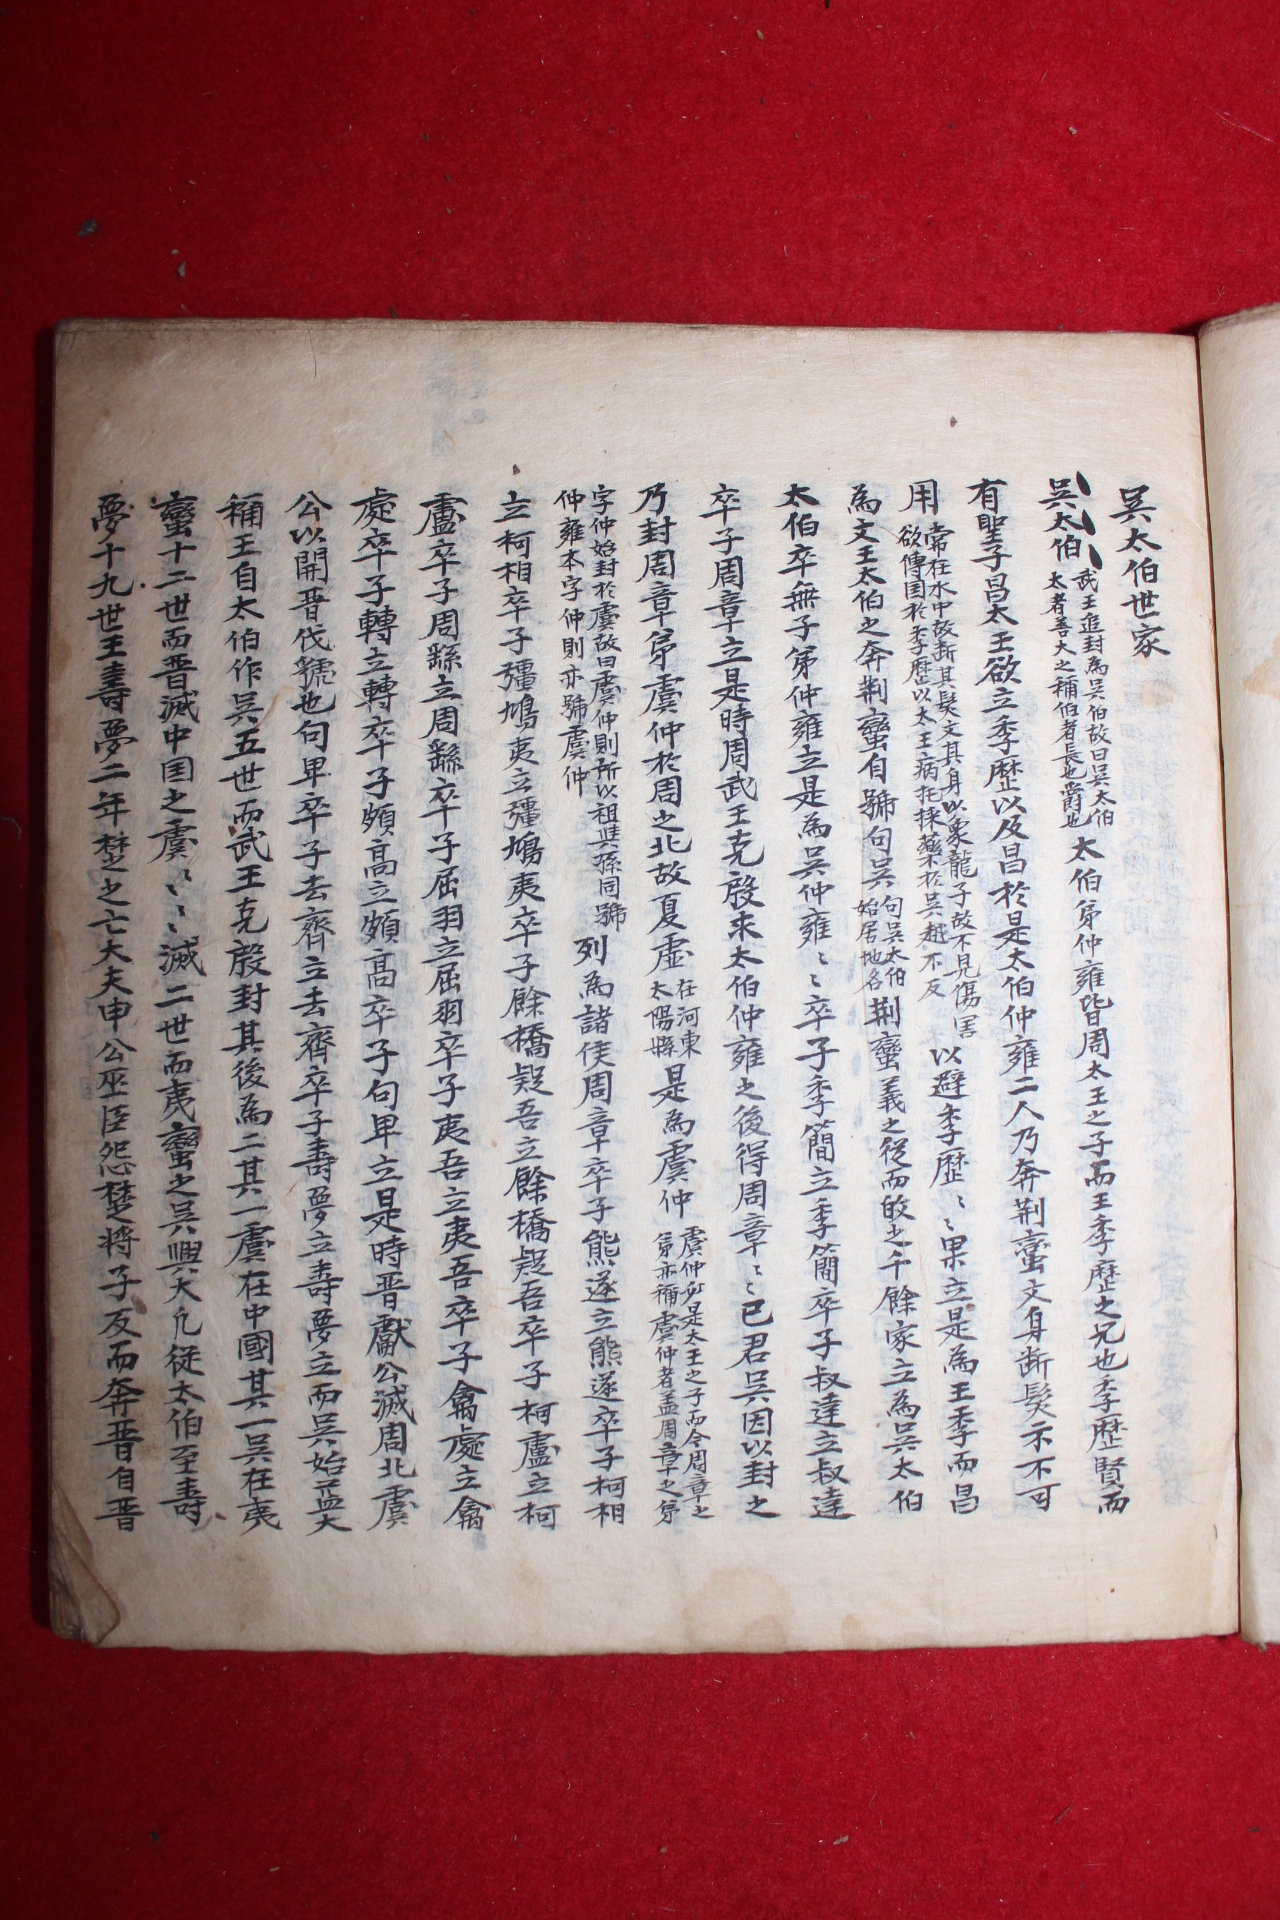 吳太伯世家
吳太伯武王追封為吳伯故曰吳太伯太者善大之稱伯者長也爵也太伯弟仲雍皆周太王之子而王季歷之兄也季歷賢而
有聖子昌太王欲立季歷以及昌於是太伯仲雍二人乃奔荆蠻文身断髮示不可
用常在水中故断其髮文其身以象龍子故不見傷害欲傳国於季歷以太王病托採藥於吳越不反以避季歷〻〻果立是為王季而昌
為文王太伯之奔荆蠻自號句吳句吳太伯始居地名荆蠻義之從而皈之千餘家立為吳太伯
太伯卒無子弟仲雍立是為吳仲雍〻〻卒子季簡立季簡卒子叔達立叔達
卒子周章立是時周武王克殷求太伯仲雍之後得周章〻〻已君吳因以封之
乃封周章弟虞仲於周之北故夏虛在河東太陽縣是為虞仲虞仲是太王之子而今周章之弟亦稱虞仲者盖周章之弟
字仲始封於虞故曰虞仲則所以祖與孫同號仲雍本字仲則亦號虞仲列為諸侯周章卒子熊遂立熊遂卒子柯相
立柯相卒子彊鳩夷立彊鳩夷卒子餘橋疑吾立餘橋疑吾卒子柯盧立柯
盧卒子周繇立周繇卒子屈羽立屈羽卒子夷吾立夷吾卒子禽處立禽
處卒子轉立轉卒子頗高立頗高卒子句卑立是時晋獻公滅周北虞
公以開晋伐虢也句卑卒子去齊立去齊卒子壽夢立壽夢立而吳始益大
稱王自太伯作吳五世而武王克殷封其後為二其一虞在中國其一吳在夷
蠻十二世而晋滅中国之虞〻〻滅二世而夷蠻之吳興大凡從太伯至壽
夢十九世王壽夢二年楚之亡大夫申公巫臣怨楚將子反而奔晋自晋